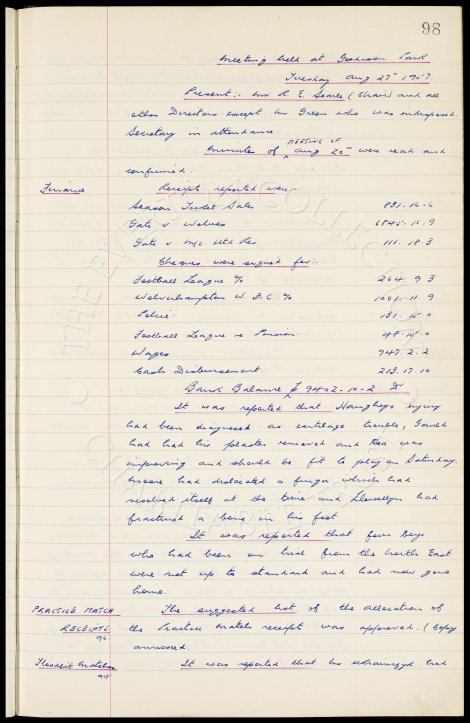 98
Meeting held at Goodison Park
Tuesday Aug 27th 1957.
Present:- Mr R. E. Searle (Chair) and all
other Directors except Mr Green who was indisposed.
Secretary in attendance.
MEETING OF
Minutes of ^ Aug 20th were read and
confirmed.
Finance
Receipts reported were:-
Season Ticket Sales 831-16-6
Gate v Wolves
Gate v M/c Utd Res 111-18-3
Cheques were signed for:-
Football League % 264-9-3
Wolverhampton W. F.C % 1001-11-9
Police
Football League re Pension 48-15-0
Wages 947-2-2
Cash Disbursement. 213-17-10
Bank Balance £ 9402-10-2
It was reported that Haughey's injury
had been diagnosed as cartilage trouble, Gauld
had had his plaster removed and Rea was
improving and should be fit to play on Saturday.
Moore had dislocated a finger which had
resolved itself at the time and Llewellyn had
fractured a bone in his foot
It was reported that four boys
who had been on trial from the North East
were not up to standard and had now gone
home.
PRACTICE MATCH
RECEIPTS.
96
The suggested list of the allocation of
the Practice Match receipts was approved. (Copy
annexed.
Floodlit Matches
It was reported that Mr had
THE EVERTON COLLECTION
CHARITABLE